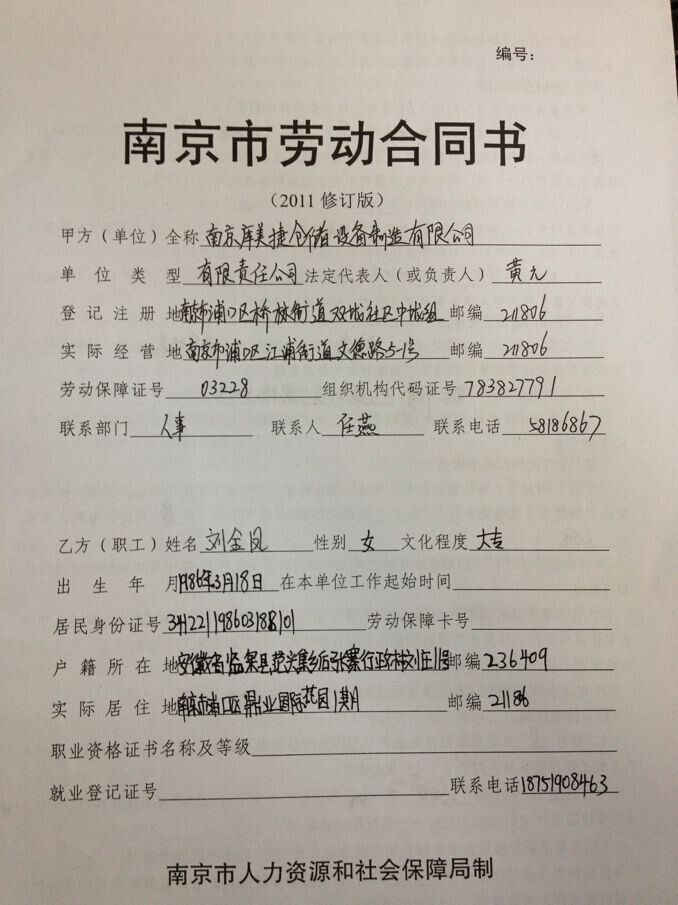 编号：
南京市劳动合同书
（2011 修订版）
甲方（单位）全称 南京库美捷仓储设备制造有限公司
单位类型 有限责任公司 法定代表人（或负责人） 黄九
登记注册地 南京市浦口区桥林街道双城社区中城组 邮编 211806
实际经营地 南京市浦口区江浦街道文德路5-1号 邮编 211806
劳动保障证号 03228 组织机构代码证号 783827791
联系部门 人事 联系人 任燕 联系电话 58186867
乙方（职工）姓名 刘金凤 性别 女 文化程度 大专
出生年月 1986年3月18日 在本单位工作起始时间
居民身份证号 劳动保障卡号
户籍所在地 安徽省临泉县范兴集乡 行政村刘庄11号 邮编 236409
实际居住地 南京市浦口区鼎业国际花园1期 邮编
职业资格证书名称及等级
就业登记证号 联系电话 18751908463
南京市人力资源和社会保障局制